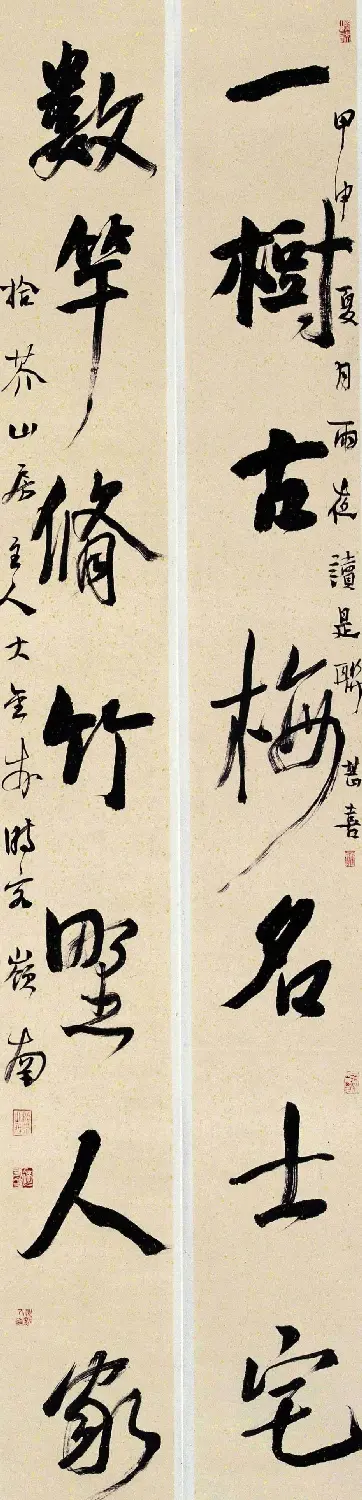 甲申夏月雨夜讀是聯甚喜
一樹古梅名士宅
數竿脩竹野人家
拾芥山居主人時客嶺南